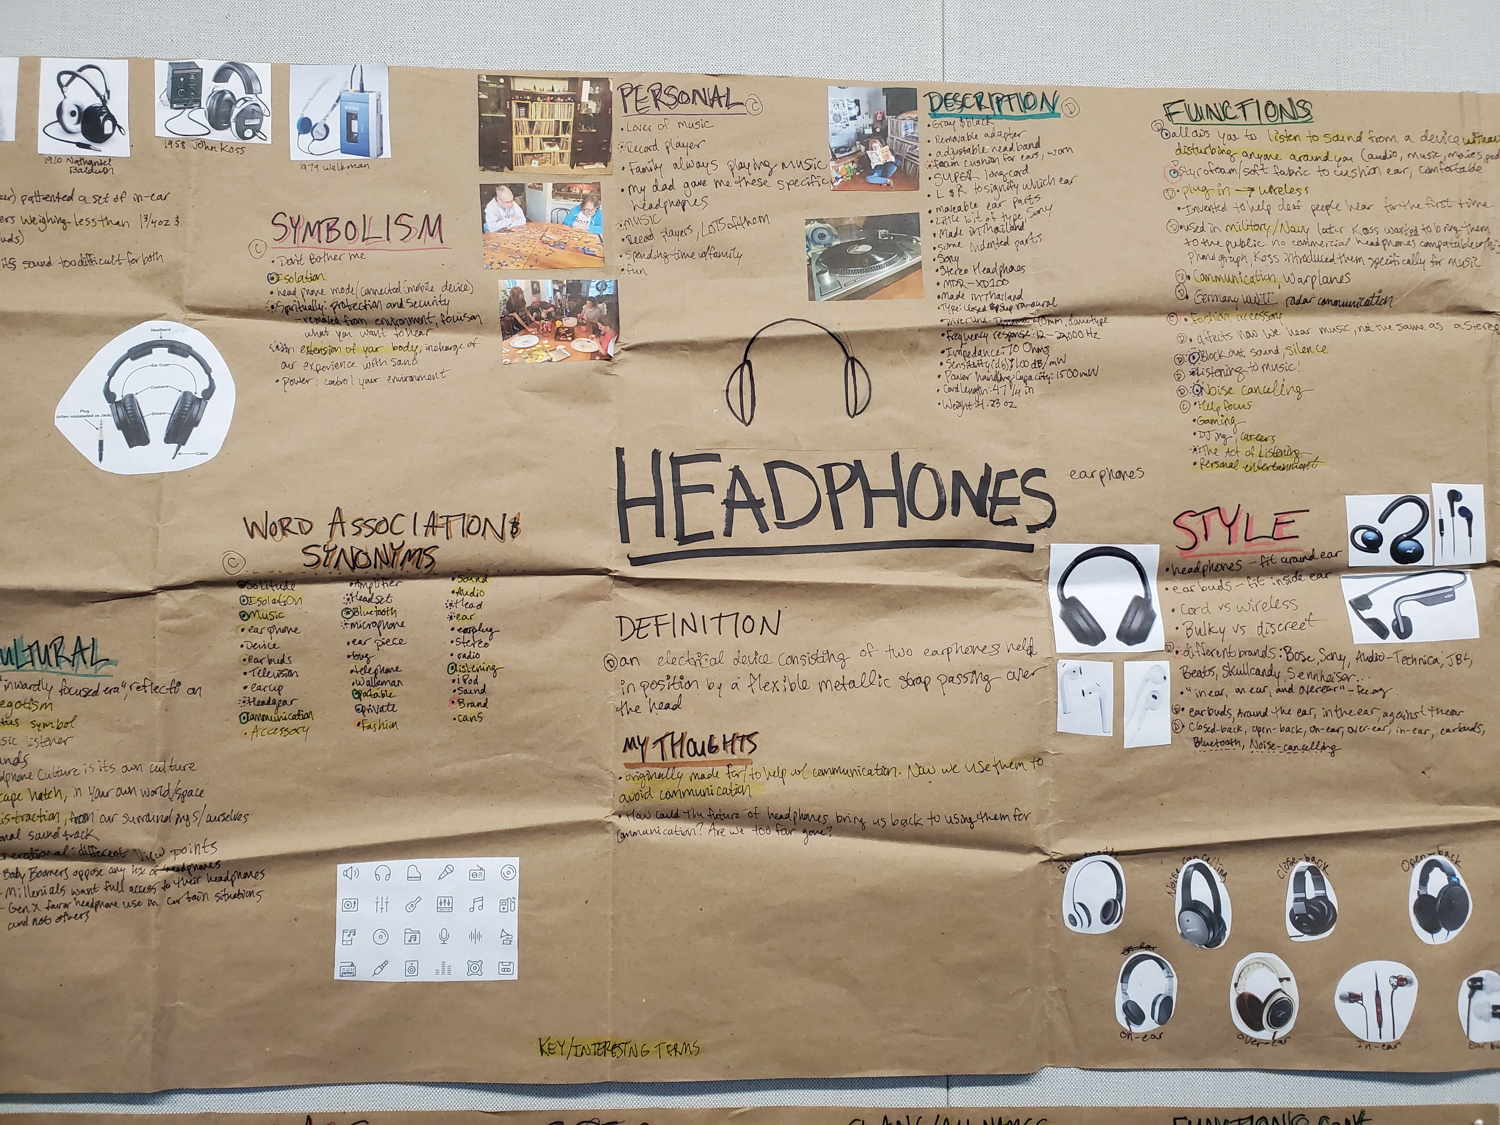 1910 Nathaniel
Baldwin
1958 John Koss
1979 Walkman
patented a set of in-ear
weighing less than 1 3/4 oz &
sound too difficult for both
SYMBOLISM
C
• Don't bother me
Isolation
• head phone mode/connected (mobile device)
Spiritually: protection and security
- removed from environment, focus on
what you want to hear
An extension of your body, incharge of
our experience with sound
• Power: control your environment
Headband
Ear Cups
Cushions
Drivers
Plug
(often mislabelled as Jack)
Cable
PERSONAL C
• Lover of music
• Record player
• Family always playing music
• my dad gave me these specific
headphones
• music
• Record players, LOTS of them
• Spending time w/family
• fun
DESCRIPTION D
• Gray & black
• Removable adapter
• adjustable headband
• foam cushion for ears, worn
• SUPER long cord
• L & R to signify which ear
• moveable ear parts
• Little bit of type, Sony
• Made in Thailand
• some indented parts
• Sony
• Stereo Headphones
• MDR-XD100
• Made in Thailand
• Frequency response: 12-22,000 Hz
• Impedance: 70 Ohms
• Sensitivity (db): 100 dB/mW
• Power handling capacity: 1500 mW
• Weight
FUNCTIONS
allows you to listen to sound from a device without
disturbing anyone around you (audio, music, movies, pod
styrofoam/soft fabric to cushion ear, comfortable
• plug in → wireless
• Invented to help deaf people hear for the first time
• used in military/Navy later Koss wanted to bring them
to the public. no commercial headphones compatable
phonograph, Koss introduced them specifically for music
• Communication, Warplanes
• Germany WWII radar communication
• Fashion accessory
• affects how we hear music, not the same as a stereo
• Block out sound, silence
• Listening to music!
• Noise canceling
• Help focus
• Gaming
• DJing, careers
• The Act of Listening
• Personal entertainment
HEADPHONES
earphones
WORD ASSOCIATION &
SYNONYMS
C
Solitude
Isolation
Music
• earphone
• Device
• earbuds
• Television
• earcup
• Headgear
Communication
• Accessory
• Amplifier
• Headset
• Bluetooth
• microphone
• ear piece
• bug
• telephone
• Walkman
• Portable
• Private
• Fashion
• Sound
• Audio
• Head
• ear
• earplug
• Stereo
• radio
• Listening
• iPod
• Sound
• Brand
• cans
DEFINITION
D an electrical device consisting of two earphones held
in position by a flexible metallic strap passing over
the head
MY THOUGHTS
• originally made for/to help w/ communication. Now we use them to
avoid communication
• How could the future of headphones bring us back to using them for
communication? Are we too far gone?
STYLE
• headphones - fit around ear
• earbuds - fit inside ear
• Cord vs wireless
• Bulky vs discreet
• different brands: Bose, Sony, Audio-Technica, JBL,
Beats, Skullcandy, Sennheiser...
• "in ear, on ear, and over ear"
• earbuds, around the ear, in the ear, against the ear
• closed-back, open-back, on-ear, over-ear, in-ear, earbuds,
Bluetooth, Noise-cancelling
ULTURAL
"inwardly focused era", reflection on
egotism
symbol
listener
Culture is its own culture
hatch, in your own world/space
distraction, from our surroundings/ourselves
soundtrack
generational: different view points
- Baby Boomers oppose any use of headphones
- Millenials want full access to their headphones
- Gen X favor headphone use in certain situations
and not others
Noise cancelling
Close-back
Open-back
on-ear
on-ear
over-ear
In-ear
KEY/INTERESTING TERMS